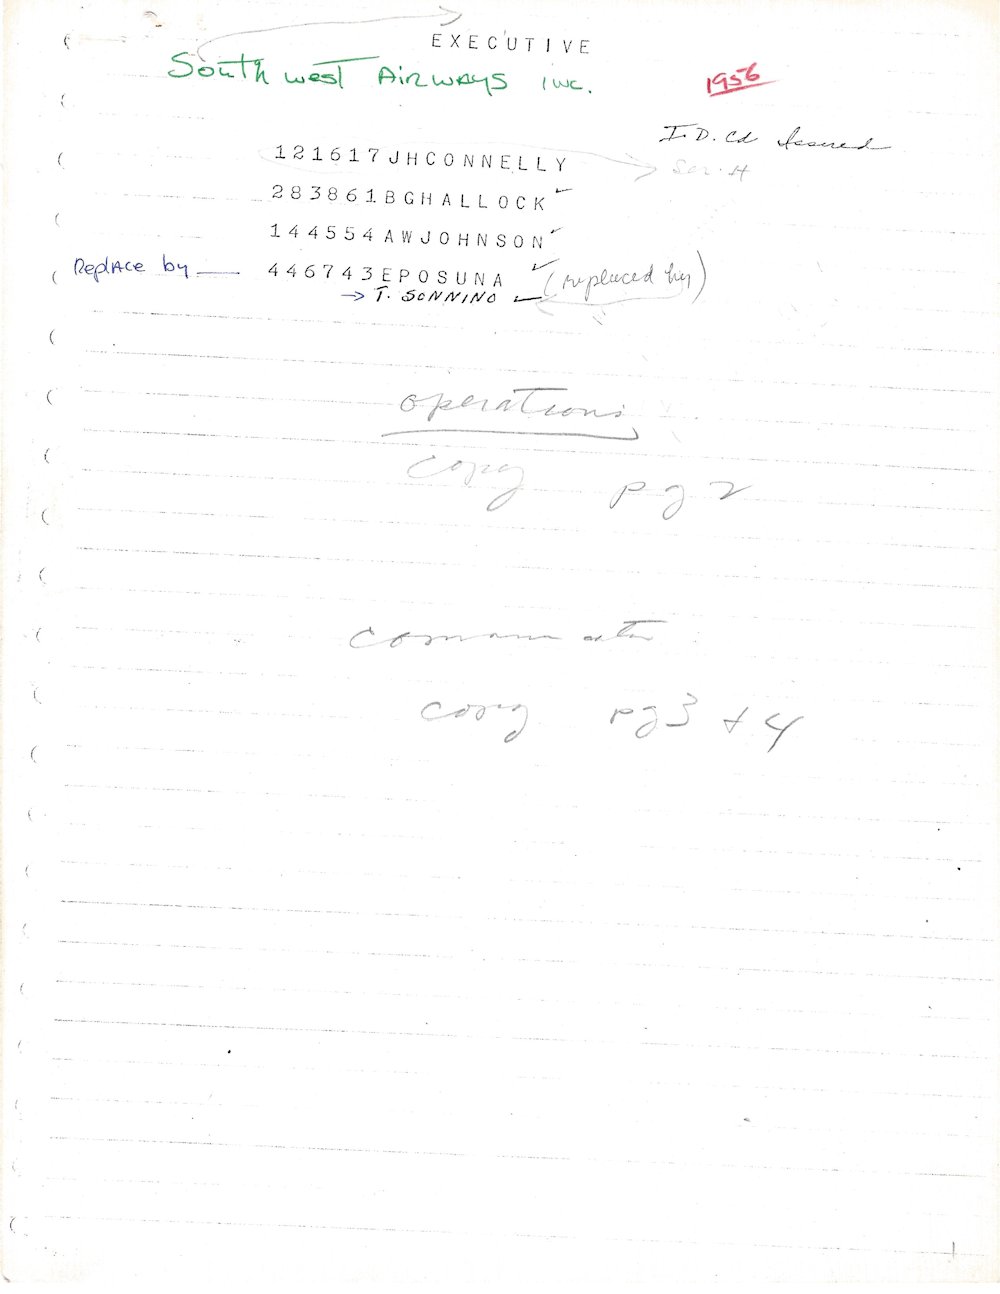 EXECUTIVE
Southwest Airways inc. 1956
I.D. Cd Issued
121617JHCONNELLY
283861BGHALLOCK ✓
144554AWJOHNSON ✓
Replace by — 446743EPOSUNA ✓ (replaced by)
→ T. SONNINO ✓
operations
copy pg 2
copy pg 3 + 4
1